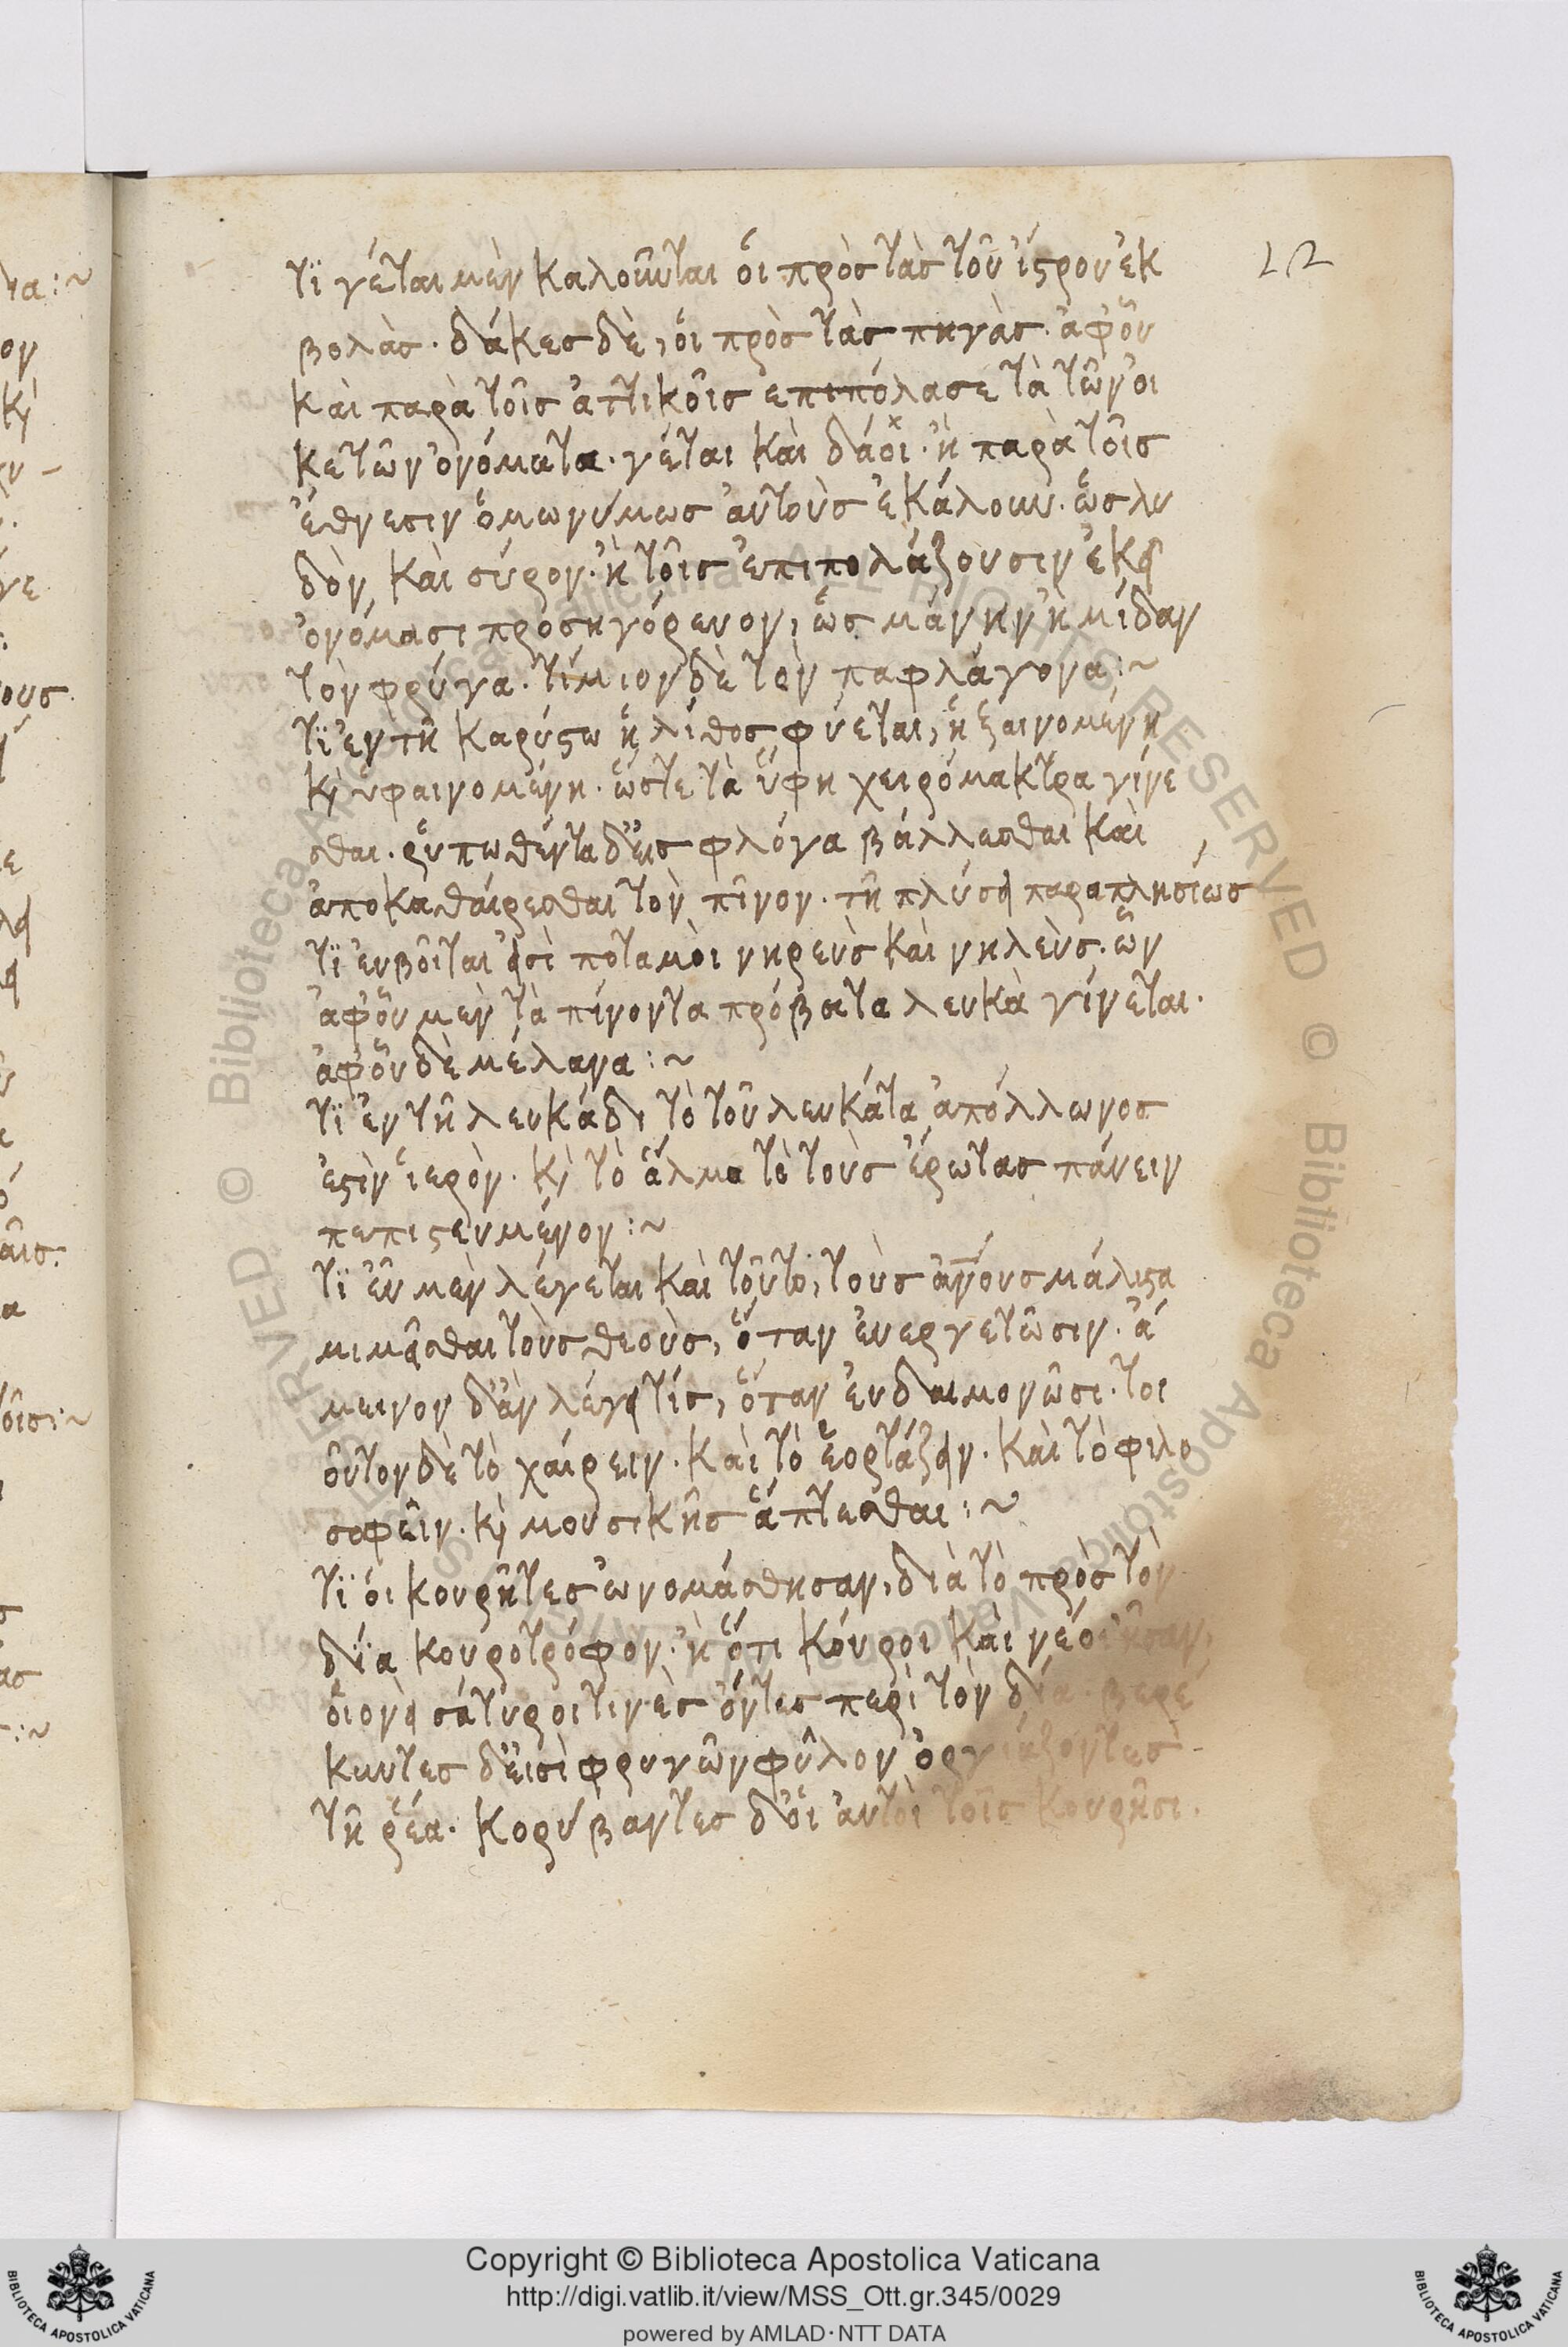 τϊ γέται μὲν καλοῦνται ὁι πρὸς τὰς τοῦ ἴςρου ἐκ
βολὰς · δάκες δὲ, ὁι πρὸς τὰς πηγὰς · ἀφ' οὗ
καὶ παρὰ τοῖς ἀττικοῖς επιπόλασε τὰ τῶν οἰ
κετῶν ὀνόματα · γέται καὶ δάοι · ἢ παρὰ τοῖς
ἔθνεσιν ὁμωνύμως ἀυτοὺς ἐκάλουν · ὡς λυ
δὸν καὶ σύρον · ἢ τοῖς ἐπιπολάζουσιν ἐκεῖ
ὀνόμασι προσηγόρευον, ὡς μάνην ἢ μίδαν
τὸν φρύγα · τίμιον δὲ τὸν παφλάγονα :~
τϊ ἐν τῆ καρύςω ἡ λίθος φύεται, ἡ ξαινομένη
κỳ ὑφαινομένη · ὥστε τὰ ὕφη χειρόμακτρα γίνε
σθαι · ῥυπωθέντα δ' εἰς φλόγα βάλλεσθαι καὶ
ἀποκαθάιρεσθαι τὸν πῖνον · τῆ πλύσει παραπλησίως
τϊ ἐυβοῖται εἰσὶ ποταμὸι νηρεὺς καὶ νηλεὺς · ὧν
ἀφ' οὗ μὲν τὰ πίνοντα πρόβατα λευκὰ γίνεται ·
ἀφ' οὗ δὲ μέλανα :~
τϊ ἐν τῆ λευκάδι τὸ τοῦ λευκάτα ἀπόλλωνος
ἐςὶν ἱερὸν · κỳ τὸ ἅλμα τὸ τοὺς ἔρωτας πάυειν
πεπιςευμένον :~
τϊ ἐῦ μὲν λέγεται καὶ τοῦτο, τοὺς ἀν̅ους μάλιςα
μιμεῖσθαι τοὺς θεοὺς, ὅταν ἐυεργετῶσιν · ἄ
μεινον δ' ἂν λέγει τίς, ὅταν ἐυδαιμονῶσι · τοι
οῦτον δὲ τὸ χάιρειν · καὶ τὸ ἑορτάζειν · καὶ τὸ φιλο
σοφεῖν · κỳ μουσικῆς ἅπτεσθαι :~
τϊ ὁι κουρῆτες ὠνομάσθησαν, διὰ τὸ πρὸς τὸν
δία κουροτρόφον · ἢ ὅτι κόυροι καὶ νέοι ἦσαν,
ὁιονεὶ σάτυροι τινὲς ὄντες περὶ τὸν δία · βερέ
κυντες δ' εἰσὶ φρυγῶν φῦλον ὀργιάζοντες
τῆ ῥέα · κορύβαντες δ' ὁι ἀυτοὶ τοῖς κουρῆσι ·
Copyright © Biblioteca Apostolica Vaticana
http://digi.vatlib.it/view/MSS_Ott.gr.345/0029
powered by AMLAD·NTT DATA